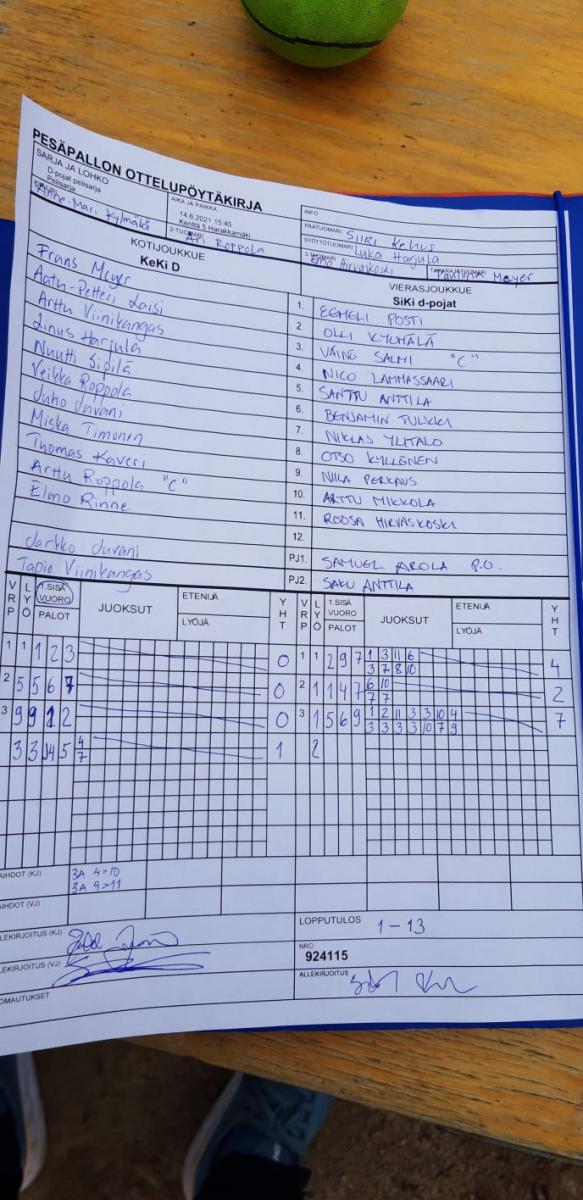 PESÄPALLON OTTELUPÖYTÄKIRJA
SARJA JA LOHKO
D-pojat pelisarja
Pelisarja
AIKA JA PAIKKA
14.6.2021 15:45
Kenttä 5 Harakkamäki
INFO
Anne-Mari Kylmälä
2-TUOMARI
Ari Roppola
PÄÄTUOMARI SIIRI Kehus
SYÖTTÖTUOMARI Luka Harjula
3-TUOMARI Elmo Hirvaskoski
TAKARAJATUOMARI Pauliina Meyer
KOTIJOUKKUE
KeKi D
VIERASJOUKKUE
SiKi d-pojat
Frans Meyer 1. EEMELI POSTI
Aatu-Petteri Laisi 2. OLLI KYLMÄLÄ
Arttu Viinikangas 3. VÄINÖ SALMI "C"
Linus Harjula 4. NICO LAMMASSAARI
Nuutti Sipilä 5. SANTTU ANTTILA
Veikka Roppola 6. BENJAMIN TULKKI
Juho Juvani 7. NIKLAS YLITALO
Miska Timonen 8. OTSO KYLLÖNEN
Thomas Kaveri 9. NIILA PERKAUS
Arttu Roppola "C" 10. ARTTU MIKKOLA
Elmo Rinne 11. ROOSA HIRVASKOSKI
12.
Jarkko Juvani PJ1. SAMUEL AROLA P.O.
Tapio Viinikangas PJ2. SAKU ANTTILA
VRP LYÖ 1.SISÄ VUORO PALOT JUOKSUT ETENIJÄ LYÖJÄ YHT VRP LYÖ 1.SISÄ VUORO PALOT JUOKSUT ETENIJÄ LYÖJÄ YHT
1 1 1 2 3 0 1 1 2 9 7 1 3 11 6 4
3 7 8 10
2 5 5 6 7 0 2 1 1 4 7 6 10 2
7 7
3 9 9 1 2 0 3 1 5 6 9 1 2 11 3 3 10 4 7
3 3 3 3 10 7 9
3 3 4 5 4 1 2
7
AIHDOT (KJ) 3A 4>10
3A 9>11
AIHDOT (VJ)
LEKIRJOITUS (KJ)
LEKIRJOITUS (VJ)
OMAUTUKSET
LOPPUTULOS 1-13
NRO
924115
ALLEKIRJOITUS